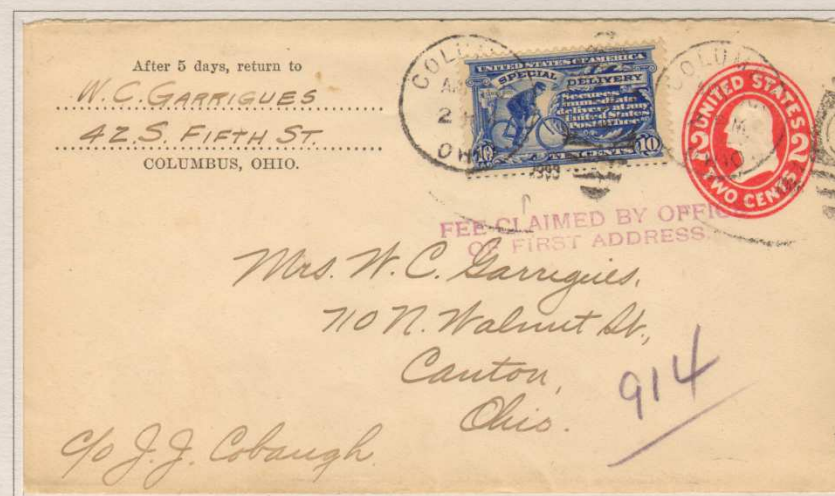 After 5 days, return to
W. C. GARRIGUES
42 S. FIFTH ST.
COLUMBUS, OHIO.
UNITED STATES OF AMERICA
SPECIAL DELIVERY
Secures
immediate
delivery at any
United States
Post Office
10 TEN CENTS 10
UNITED STATES
2 2
TWO CENTS
FEE CLAIMED BY
OF FIRST ADDRESS.
Mrs. W. C. Garrigues,
710 N. Walnut St.,
Canton,
Ohio.
914
c/o J. J. Cobaugh.